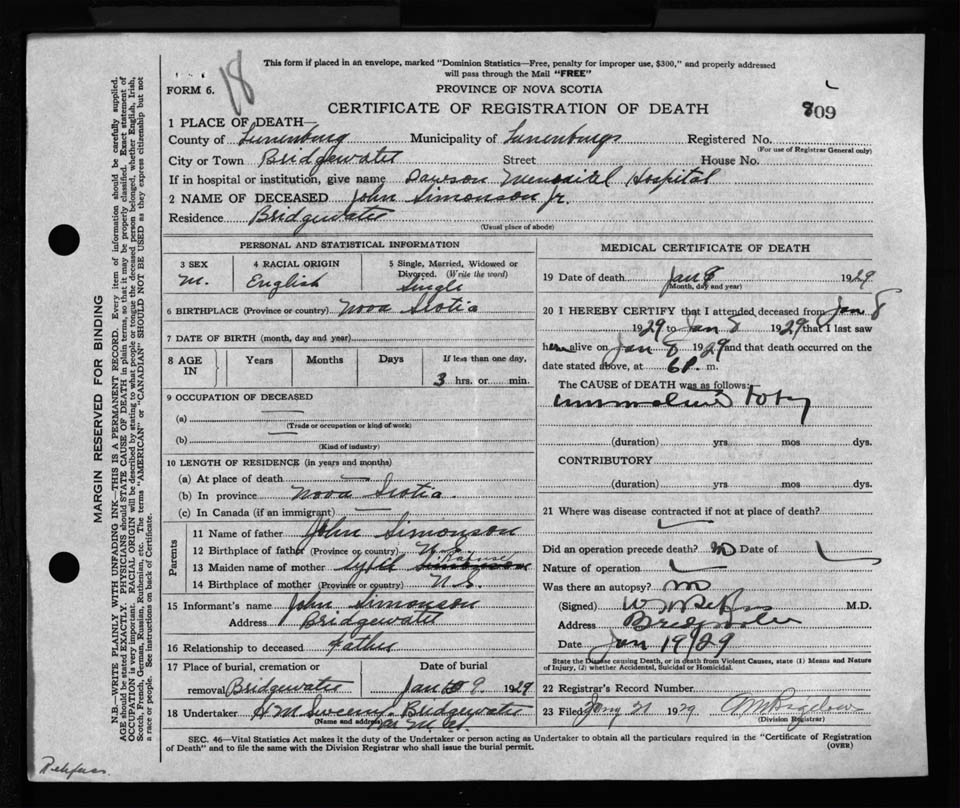 18
This form if placed in an envelope, marked "Dominion Statistics—Free, penalty for improper use, $300," and properly addressed
will pass through the Mail "FREE"
FORM 6.
PROVINCE OF NOVA SCOTIA
CERTIFICATE OF REGISTRATION OF DEATH
809
1 PLACE OF DEATH—
County of Lunenburg Municipality of Lunenburg Registered No.
(For use of Registrar General only)
City or Town Bridgewater Street House No.
If in hospital or institution, give name Dawson Memorial Hospital
2 NAME OF DECEASED John Simonson Jr.
Residence Bridgewater
(Usual place of abode)
PERSONAL AND STATISTICAL INFORMATION
3 SEX 4 RACIAL ORIGIN 5 Single, Married, Widowed or
Divorced. (Write the word)
M. English Single
6 BIRTHPLACE (Province or country) Nova Scotia
7 DATE OF BIRTH (month, day and year)
8 AGE IN Years Months Days If less than one day,
3 hrs. or min.
9 OCCUPATION OF DECEASED
(a)
(Trade or occupation or kind of work)
(b)
(Kind of industry)
10 LENGTH OF RESIDENCE (in years and months)
(a) At place of death
(b) In province Nova Scotia
(c) In Canada (if an immigrant)
Parents
11 Name of father John Simonson
12 Birthplace of father (Province or country) N.S.
13 Maiden name of mother Simonson
14 Birthplace of mother (Province or country) N.S.
15 Informant's name John Simonson
Address Bridgewater
16 Relationship to deceased father
17 Place of burial, cremation or Date of burial
removal Bridgewater Jan 9 1929
18 Undertaker H M Sweeny Bridgewater
(Name and address)
MEDICAL CERTIFICATE OF DEATH
19 Date of death Jan 8 1929
(Month, day and year)
20 I HEREBY CERTIFY that I attended deceased from Jan 8
1929 to Jan 8 1929 that I last saw
him alive on Jan 8 1929 and that death occurred on
date stated above, at 6 P. m.
The CAUSE OF DEATH was as follows:
(duration) yrs mos dys.
CONTRIBUTORY
(duration) yrs mos dys.
21 Where was disease contracted if not at place of death?
Did an operation precede death? no Date of
Nature of operation
Was there an autopsy? no
(Signed) M.D.
Address Bridgewater
Date Jan 19/29
State the Disease causing Death, or in death from Violent Causes, state (1) Means and Nature
of Injury, (2) whether Accidental, Suicidal or Homicidal.
22 Registrar's Record Number
23 Filed Jany 21 1929
(Division Registrar)
SEC. 46—Vital Statistics Act makes it the duty of the Undertaker or person acting as Undertaker to obtain all the particulars required in the "Certificate of Registration
of Death" and to file the same with the Division Registrar who shall issue the burial permit.
(OVER)
MARGIN RESERVED FOR BINDING
N.B.—WRITE PLAINLY WITH UNFADING INK—THIS IS A PERMANENT RECORD. Every item of information should be carefully supplied.
AGE should be stated EXACTLY. PHYSICIANS should STATE CAUSE OF DEATH in plain terms, so that it may be properly classified. Exact statement of
OCCUPATION is very important. RACIAL ORIGIN will be described by stating to what people or tongue the deceased person belonged, whether English, Irish,
Scotch, French, German, Russian, Ruthenian, etc. The terms "AMERICAN" or "CANADIAN" SHOULD NOT BE USED as they express citizenship but not
a race or people. See instructions on back of Certificate.